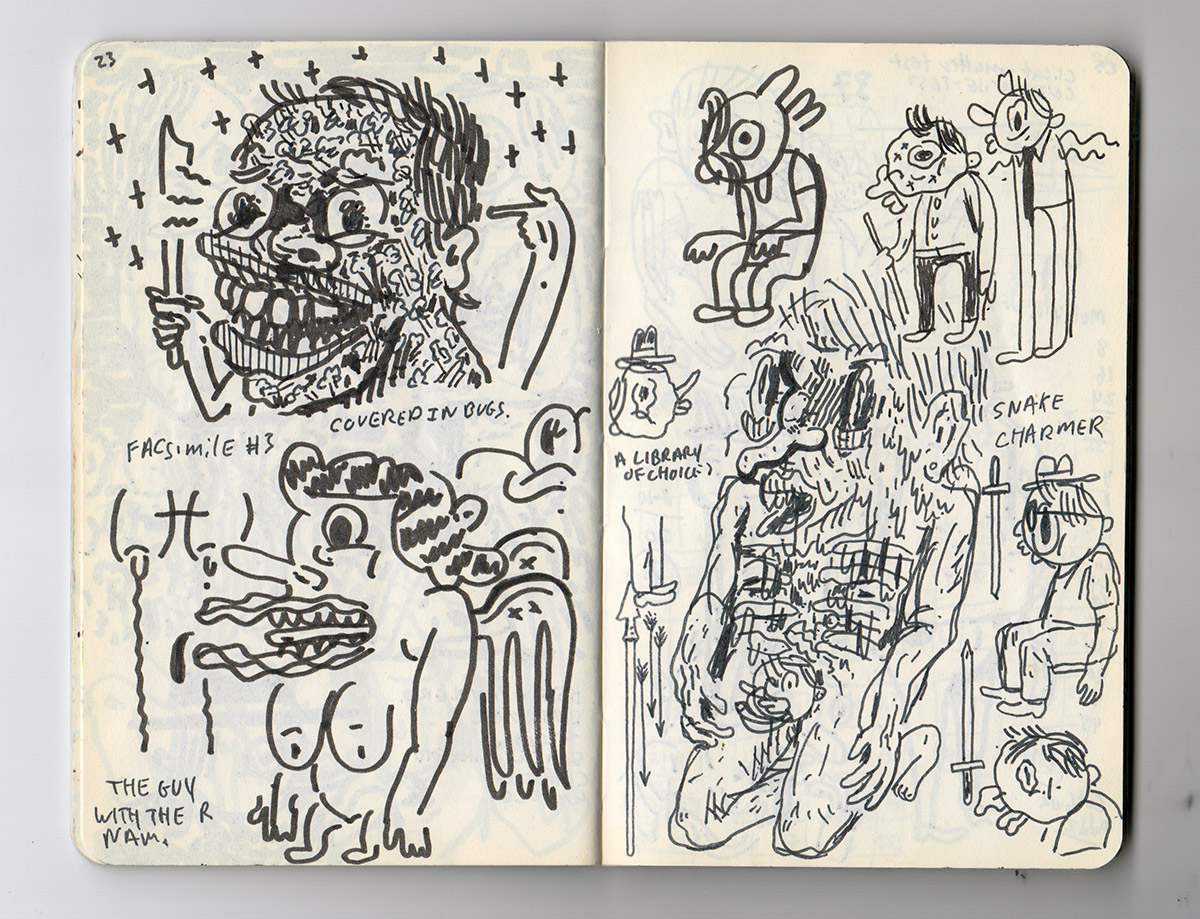 23
COVERED IN BUGS.
FACSIMILE #3
THE GUY
WITH THE R
NAM.
A LIBRARY
OF CHOICE?
SNAKE
CHARMER